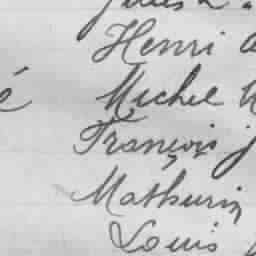 Henri
é Michel
François
Mathurin
Louis